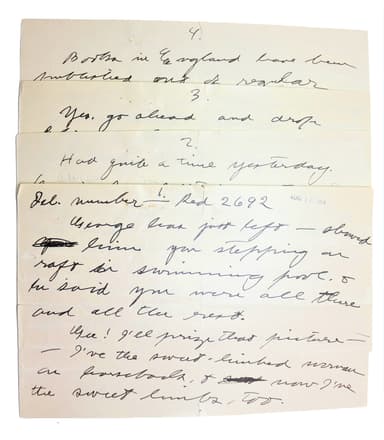 4.
Books in England have been
published out of regular
3.
Yes, go ahead and drop
2.
Had quite a time yesterday.
1.
Tel. number — Red 2692
George has just left — showed
him you stepping on
raft in swimming pool. &
he said you were all there
and all the rest.
Gee! I'll prize that picture —
— I've the sweet-limbed woman
on horseback, & now I've
the sweet limbs, too.